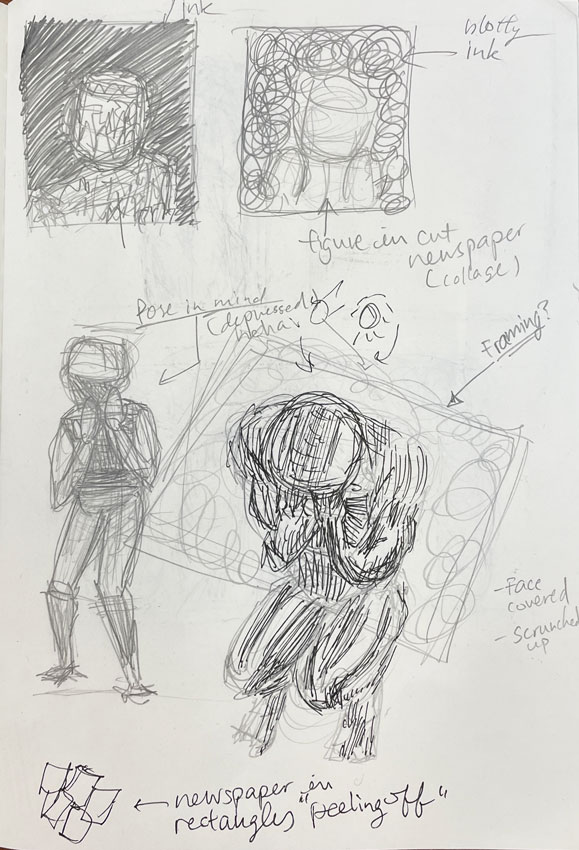 ink
blotty
ink
figure in cut
newspaper
(collage)
Pose in mind
(depressed)
Framing?
- Face
covered
- Scrunched
up
newspaper in
rectangles "peeling off"